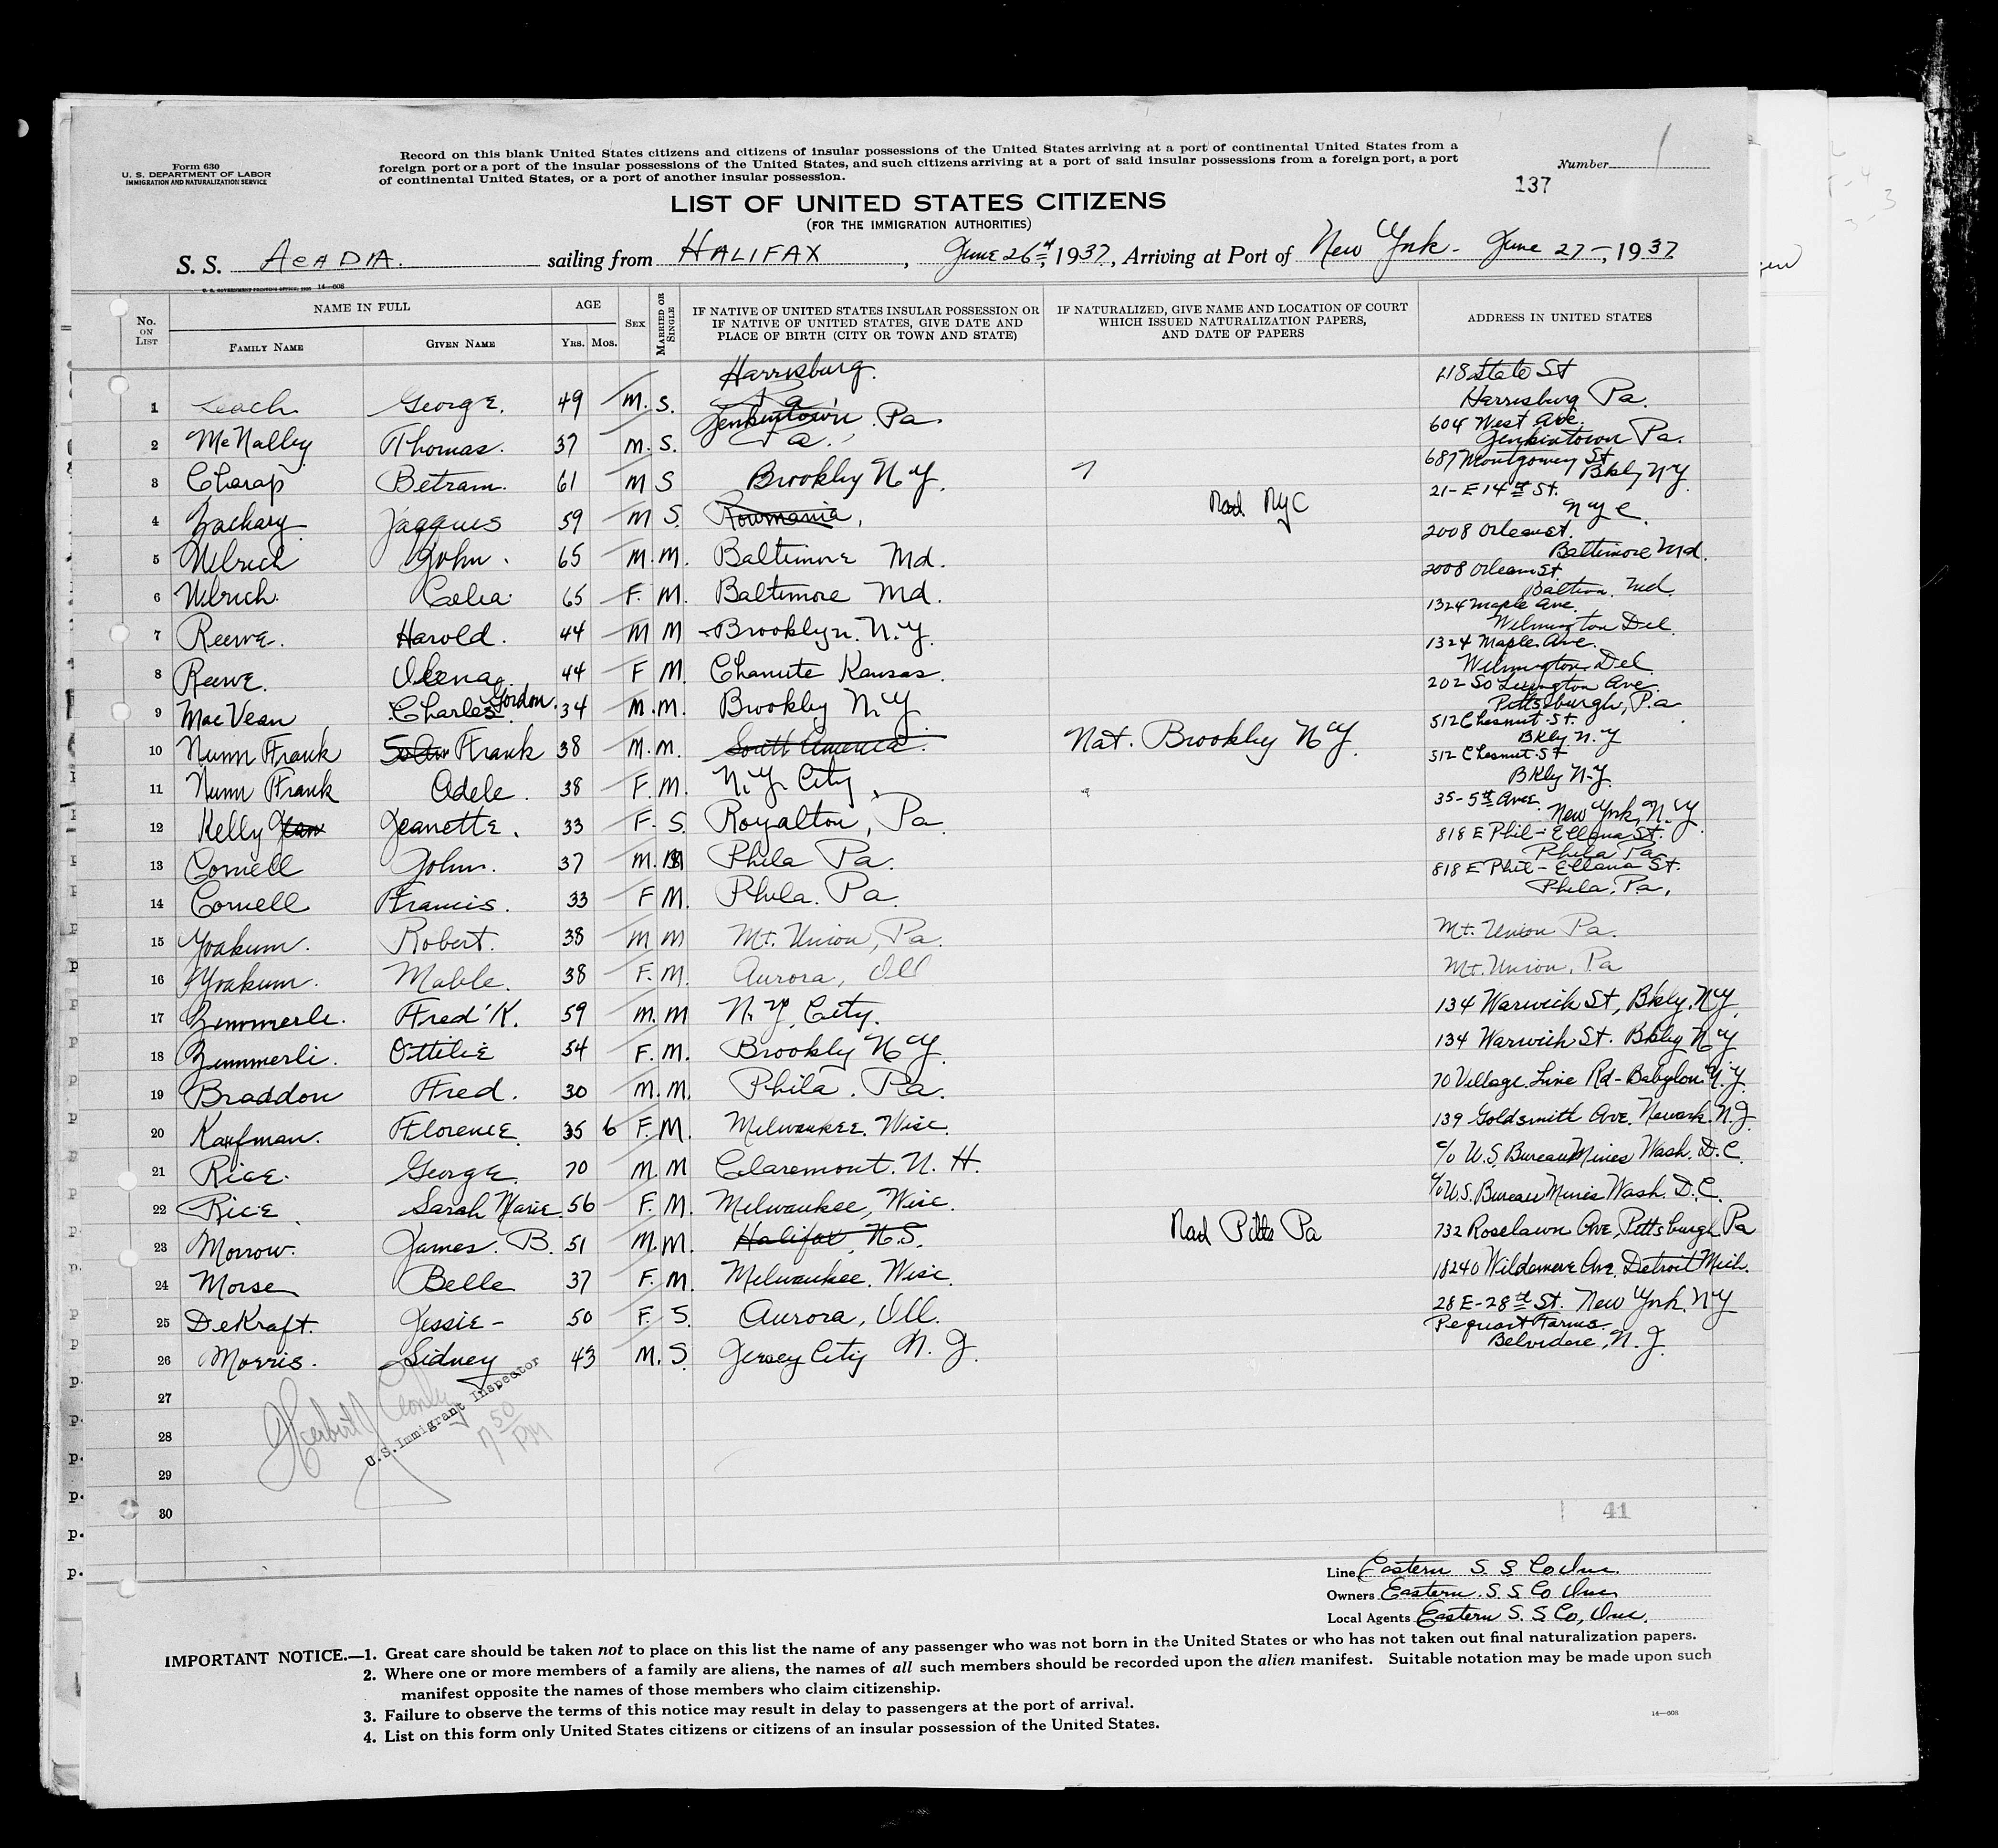 Form 630
U. S. DEPARTMENT OF LABOR
IMMIGRATION AND NATURALIZATION SERVICE
Record on this blank United States citizens and citizens of insular possessions of the United States arriving at a port of continental United States from a
foreign port or a port of the insular possessions of the United States, and such citizens arriving at a port of said insular possessions from a foreign port, a port
of continental United States, or a port of another insular possession.
Number 1
137
LIST OF UNITED STATES CITIZENS
(FOR THE IMMIGRATION AUTHORITIES)
S. S. ACADIA. sailing from HALIFAX, June 26th, 1937, Arriving at Port of New York - June 27-, 1937
U. S. GOVERNMENT PRINTING OFFICE: 14—608
No. ON LIST NAME IN FULL AGE SEX MARRIED OR SINGLE IF NATIVE OF UNITED STATES INSULAR POSSESSION OR IF NATIVE OF UNITED STATES, GIVE DATE AND PLACE OF BIRTH (CITY OR TOWN AND STATE) IF NATURALIZED, GIVE NAME AND LOCATION OF COURT WHICH ISSUED NATURALIZATION PAPERS, AND DATE OF PAPERS ADDRESS IN UNITED STATES
FAMILY NAME GIVEN NAME YRS. MOS.
1 Leach George. 49 M. S. Harrisburg. Pa 118 State St Harrisburg Pa.
2 McNalley Thomas. 37 M. S. Jenkintown. Pa. Pa. 604 West Ave. Jenkintown Pa.
3 Charap Betram. 61 M S Brookly N.Y. 687 Montgomery St Bkly NY
4 Zachary Jaques 59 M S. Roumania, Nad NYC 21-E 14th St. NYC.
5 Ulrich John. 65 M. M. Baltimore Md. 2008 Orlean st. Baltimore Md.
6 Ulrich. Celia. 65 F. M. Baltimore Md. 2008 Orlean St. Md.
7 Reeve. Harold. 44 M M Brooklyn. N.Y. 1324 Maple Ave. Wilmington Del
8 Reeve. 44 F M. Chanute Kansas. 1324 Maple Ave. Wilmington Del
9 MacVean Charles Gordon. 34 M. M. Brookly N.Y 202 So Lexington Ave. Pittsburgh, Pa
10 Nunn Frank Frank 38 M. M. South America. Nat. Brookley NY. 512 Chesnut St. Bkly N.Y
11 Nunn Frank Adele. 38 F. M. N.Y. City, 512 Chesnut St Bkly N.Y.
12 Kelly Jean Jeanette. 33 F. S. Royalton, Pa. 35-5th Ave. New York, N.Y.
13 Cornell John. 37 M. M Phila Pa. 818 E Phil-Ellana St. Phila Pa
14 Cornell Francis. 33 F M. Phila. Pa. 818 E Phil-Ellana St. Phila. Pa.
15 Yoakum. Robert. 38 M M Mt. Union, Pa. Mt. Union Pa.
16 Yoakum. Mable. 38 F. M. Aurora, Ill Mt. Union, Pa
17 Zimmerli. Fred'K. 59 M. M N.Y. City. 134 Warwick St, Bkly, N.Y.
18 Zimmerli. Ottilie 54 F. M. Brookly N.Y. 134 Warwick St. Bkly N.Y
19 Braddon Fred. 30 M. M. Phila. Pa. 70 Village Line Rd-Babylon N.Y.
20 Kaufman. Florence. 35 6 F. M. Milwaukee. Wisc. 139 Goldsmith Ave. Newark. N.J.
21 Rice. George. 70 M. M Claremont. N. H. c/o U.S. Bureau Mines Wash. D.C.
22 Rice Sarah Marie. 56 F. M. Milwaukee, Wisc. c/o U.S. Bureau Mines Wash. D.C.
23 Morrow. James. B. 51 M. M. Halifax, N.S. Nad Pitts Pa 732 Roselawn Ave, Pittsburgh Pa
24 Morse Belle 37 F. M. Milwaukee. Wisc. 18240 Wildemere Ave. Detroit Mich.
25 DeKraft. Jessie- 50 F. S. Aurora, Ill. 28 E-28th St. New York, NY
26 Morris. Sidney 43 M. S. Jersey City N. J. Pequost Farms. Belvidere, N. J.
27
28
29
30
Herbert J. Conley
U.S. Immigrant Inspector
7 50 PM
41
Line Eastern S. S. Co Inc.
Owners Eastern. S S Co Inc
Local Agents Eastern S. S. Co, Inc.
IMPORTANT NOTICE.—1. Great care should be taken not to place on this list the name of any passenger who was not born in the United States or who has not taken out final naturalization papers.
2. Where one or more members of a family are aliens, the names of all such members should be recorded upon the alien manifest. Suitable notation may be made upon such
manifest opposite the names of those members who claim citizenship.
3. Failure to observe the terms of this notice may result in delay to passengers at the port of arrival.
4. List on this form only United States citizens or citizens of an insular possession of the United States.
14—608